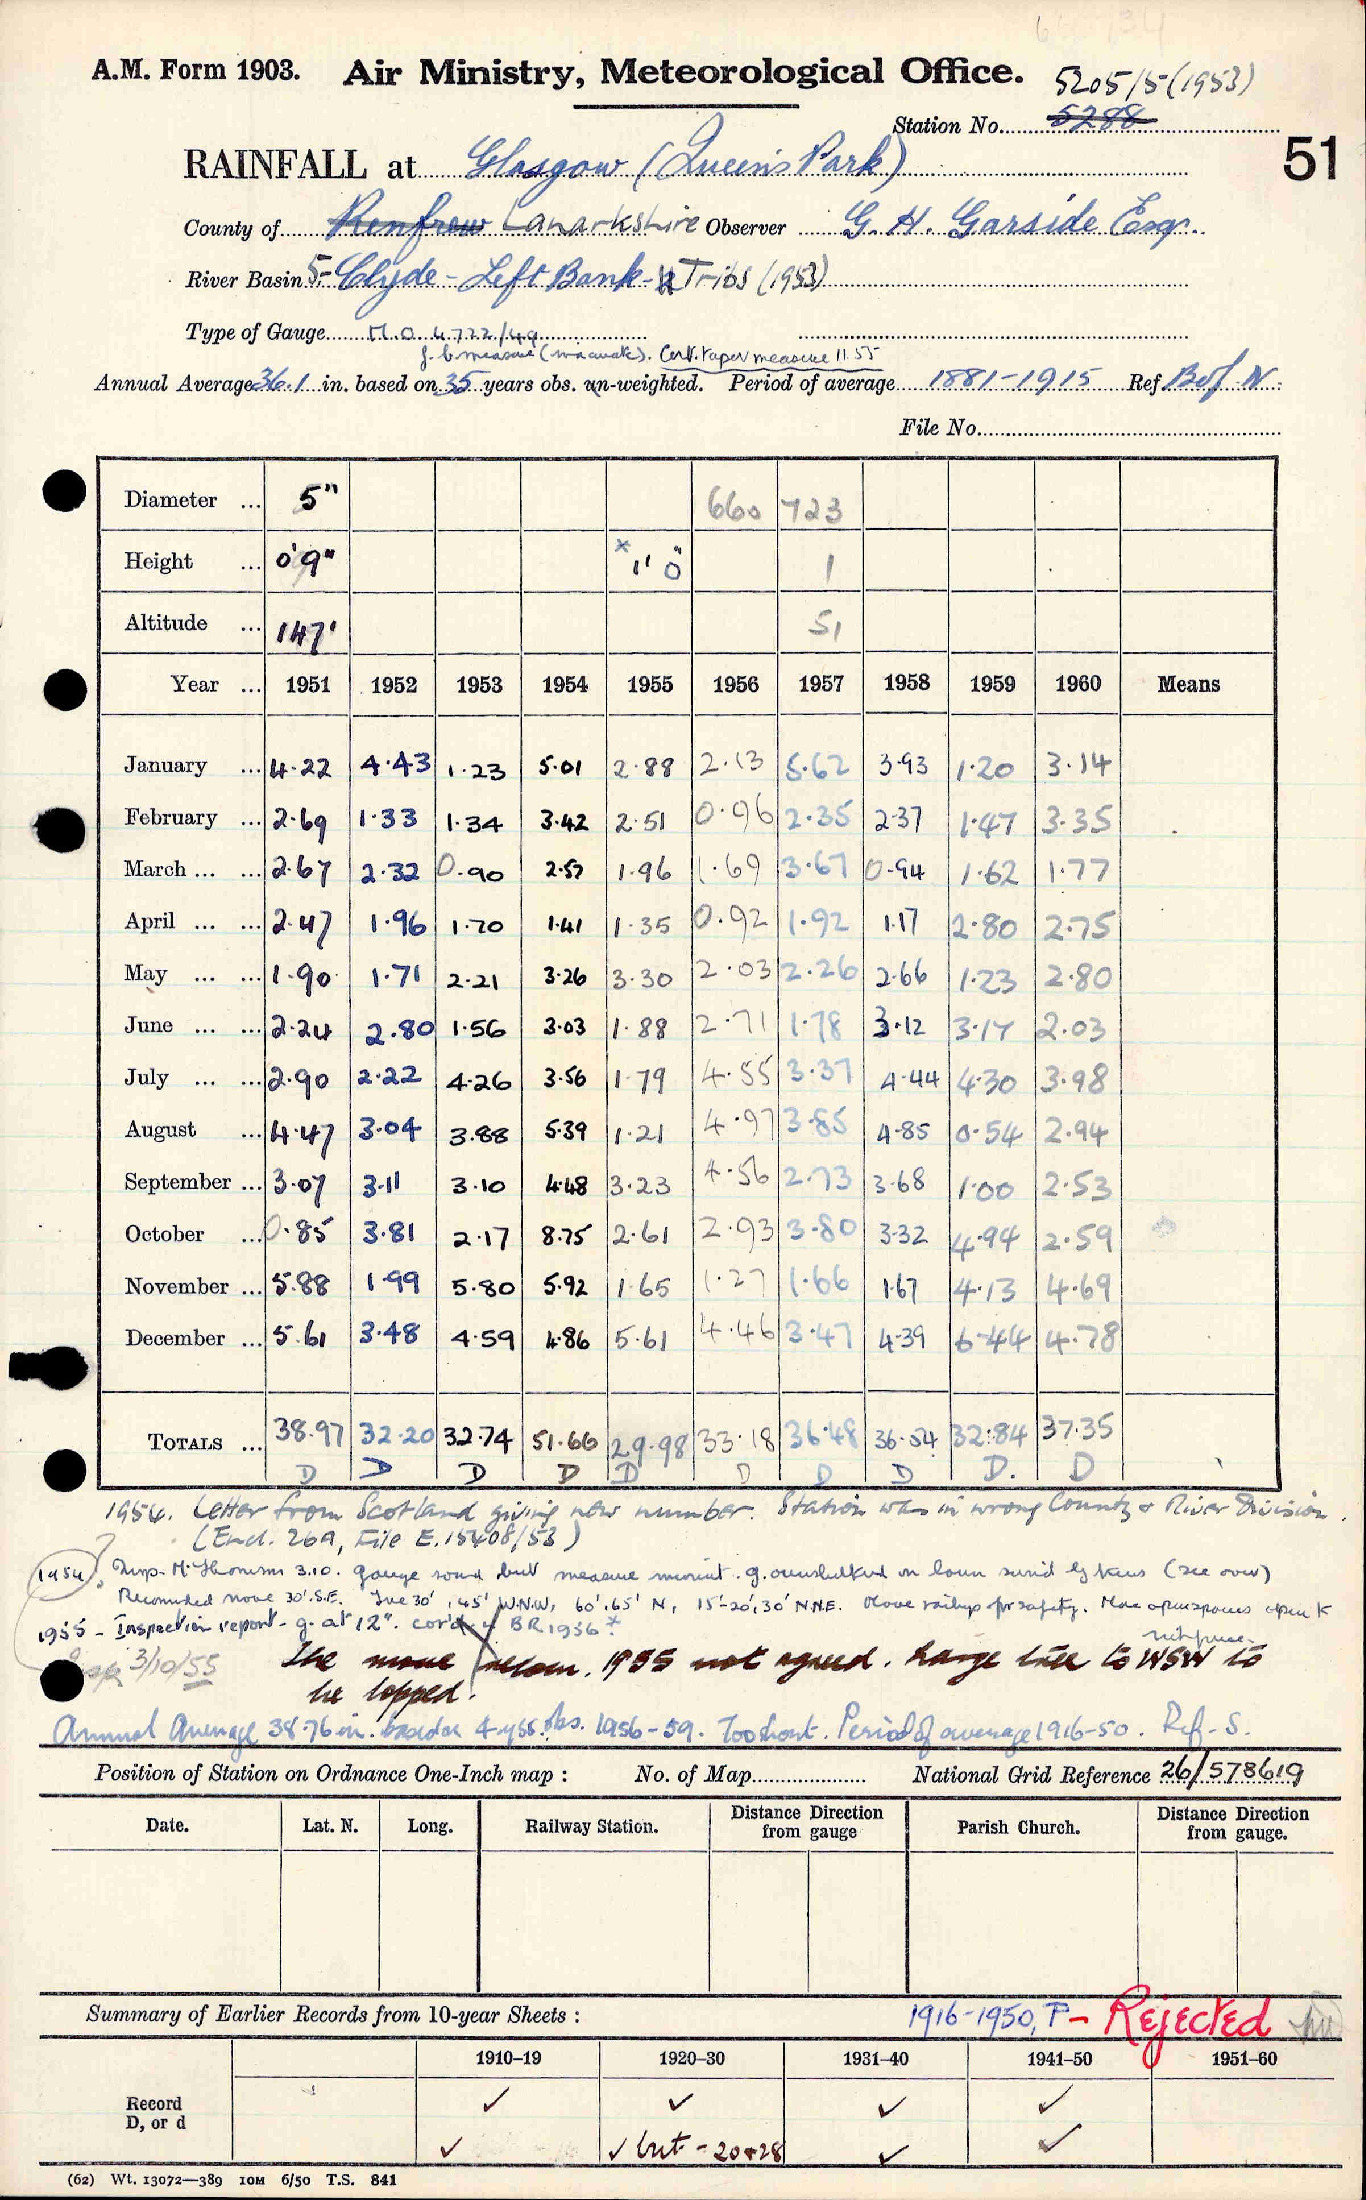 A.M. Form 1903. Air Ministry, Meteorological Office. 5205/5(1953)
Station No. 5288
51
RAINFALL at Glasgow (Queen's Park)
County of Renfrew Lanarkshire Observer G. H. Garside Esq.
River Basin 5- Clyde - Left Bank - Tribs (1953)
Type of Gauge M.O. 4722/49
(inaccurate). Cert. taper measure 11.55
Annual Average 36.1 in. based on 35 years obs. un-weighted. Period of average 1881-1915 Ref B of N.
File No.
Diameter ... 5" 660 723
Height ... 0'9" * 1' 0" 1
Altitude ... 147' 51
Year ... 1951 1952 1953 1954 1955 1956 1957 1958 1959 1960 Means
January ... 4.22 4.43 1.23 5.01 2.88 2.13 5.62 3.93 1.20 3.14
February ... 2.69 1.33 1.34 3.42 2.51 0.96 2.35 2.37 1.47 3.35
March ... ... 2.67 2.32 0.90 2.57 1.96 1.69 3.67 0.94 1.62 1.77
April ... ... 2.47 1.96 1.70 1.41 1.35 0.92 1.92 1.17 2.80 2.75
May ... ... 1.90 1.71 2.21 3.26 3.30 2.03 2.26 2.66 1.23 2.80
June ... ... 2.24 2.80 1.56 3.03 1.88 2.71 1.78 3.12 3.17 2.03
July ... ... 2.90 2.22 4.26 3.56 1.79 4.55 3.37 4.44 4.30 3.98
August ... 4.47 3.04 3.88 5.39 1.21 4.97 3.85 4.85 0.54 2.94
September ... 3.07 3.11 3.10 4.48 3.23 4.56 2.73 3.68 1.00 2.53
October ... 0.85 3.81 2.17 8.75 2.61 2.93 3.80 3.32 4.94 2.59
November ... 5.88 1.99 5.80 5.92 1.65 1.27 1.66 1.67 4.13 4.69
December ... 5.61 3.48 4.59 4.86 5.61 4.46 3.47 4.39 6.44 4.78
TOTALS ... 38.97 32.20 32.74 51.66 29.98 33.18 36.48 36.54 32.84 37.35
D D D D D D D D D. D
1954. Letter from Scotland giving new number. Station was in wrong County & River Division.
(Encl. 26A, File E.15408/53)
1954. Insp. 3.10. gauge sound but measure (see over)
Recommended move 30' S.E. Tree 30', 45' W.N.W, 60', 65' N, 15'-20', 30' N.N.E. Move railings for safety.
1955 - Inspection report - g. at 12". BR 1956 *
3/10/55
The move 1955 not agreed. Large tree to WSW to
be lopped.
Annual Average 38.76 in. based on 4 yrs. obs. 1956-59. Too short. Period of average 1916-50. Ref. S.
Position of Station on Ordnance One-Inch map : No. of Map National Grid Reference 26/578619
Date. Lat. N. Long. Railway Station. Distance Direction from gauge Parish Church. Distance Direction from gauge.
Summary of Earlier Records from 10-year Sheets : 1916-1950, P - Rejected
1910–19 1920–30 1931–40 1941–50 1951–60
Record ✓ ✓ ✓ ✓
D, or d
✓ ✓ but - 20+28 ✓ ✓
(62) Wt. 13072—389 10M 6/50 T.S. 841